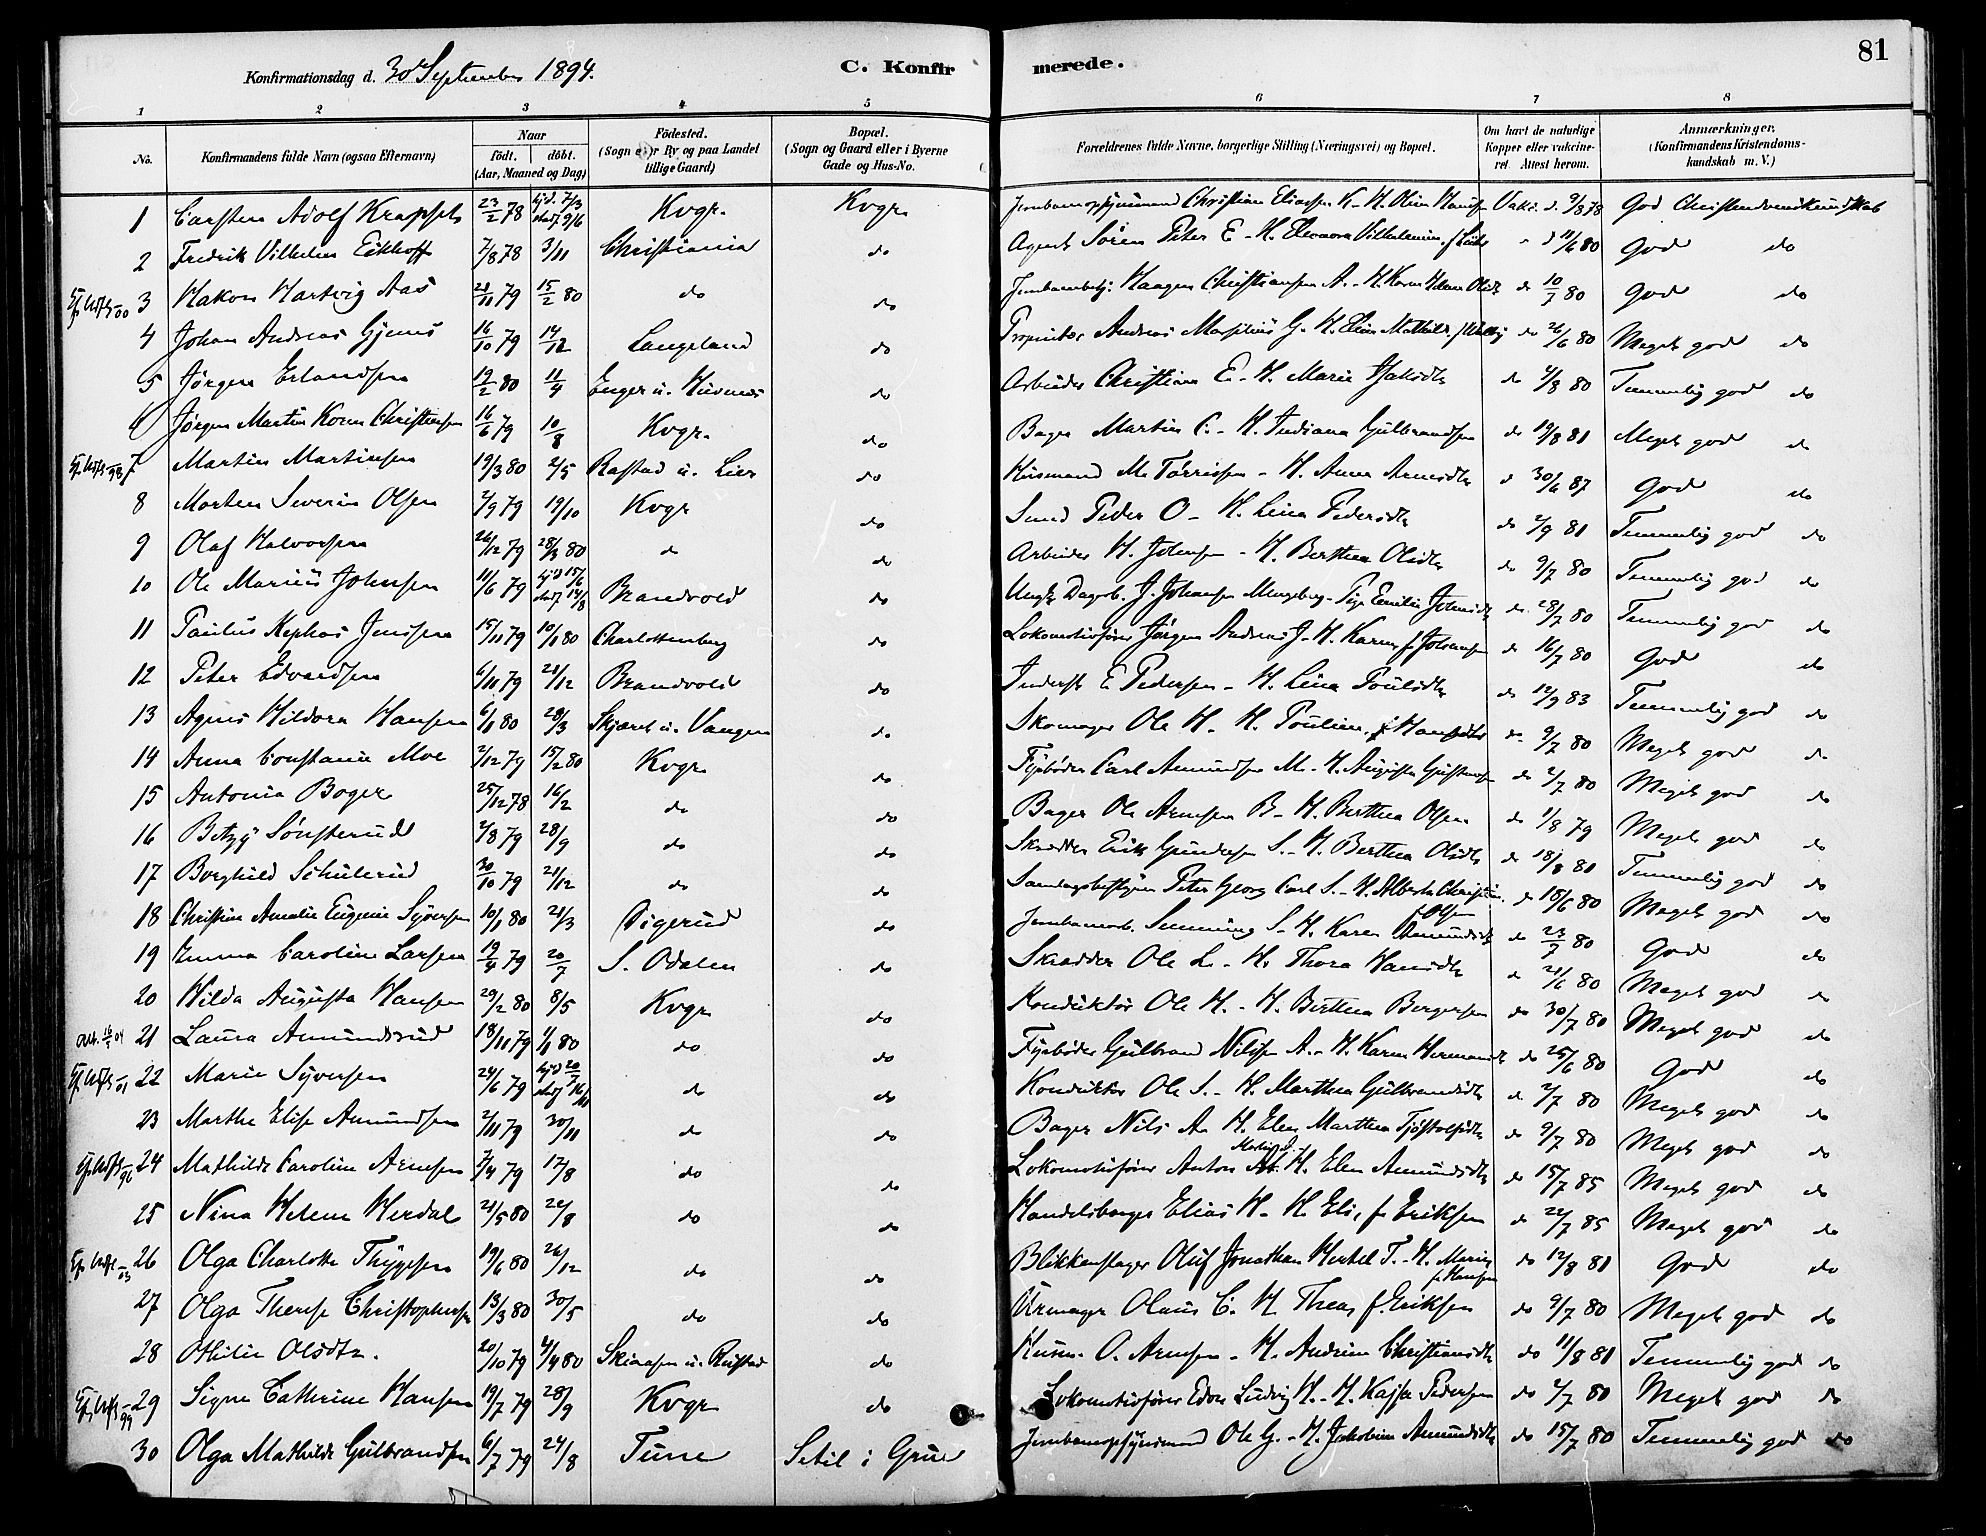 81
Konfirmationsdag d. 30 September 1894. C. Konfirmerede.
1 2 3 4 5 6 7 8
No. Konfirmandens fulde Navn (ogsaa Efternavn) Naar födt. döbt. (Aar, Maaned og Dag) Födested. (Sogn eller By og paa Landet tillige Gaard) Bopæl. (Sogn og Gaard eller i Byerne Gade og Hus-No. Forældrenes fulde Navne, borgerlige Stilling (Næringsvei) og Bopæl. Om havt de naturlige Kopper eller vakcineret. Attest herom. Anmærkninger, (Konfirmandens Kristendomskundskab m. V.)
1 Carsten Adolf 23/2 78 hjd. 7/3 stadf 9/6 Kvgr. Kvgr. Christian Eliassen K. H. Olive Hansen Vakc. d. 9/8 78 God Christendomskundskab
2 Fredrik Vilhelm Eckhoff 7/8 78 3/11 Christiania do Agent Sören Peter E - H. Eleonora 11/6 80 God do
3 Hakon Hartvig Aas 21/11 79 15/2 80 do do Haagen Christiansen A. - H. Karen do 10/7 80 God do
4 Johan Andreas Gjems 16/10 79 14/12 Langeland do Proprietær Andreas G. H. Elise Mathilde do 26/6 80 Meget god do
5 Jörgen Erlandsen 19/2 80 11/4 Enger u. do Arbeider Christian E - H. Marie do 4/8 80 Temmelig god do
6 Jörgen Martin Korn Christensen 16/6 79 10/8 Kvgr. do Bager Martin C. - H. Indiana Gulbrandsen do 19/8 81 Meget god do
7 Martin Martinsen 19/3 80 2/5 Rastad u. Lier do Husmand M. Törrissen - H. Anne Arnesdtr d 30/6 87 God do
8 Morten Severin Olsen 2/9 79 19/10 Kvgr do Smed Peder O - H. Lina Pedersdtr do 2/9 81 Temmelig god do
9 Olaf Halvorsen 26/12 79 28/3 80 d do Arbeider H. Johnsen - H. Berthea Olsdtr do 9/7 80 Temmelig god do
10 Ole Marius Johnsen 11/6 79 hjd 15/6 stadf 14/8 Brandvold do Ungk. Dagarb. J. Johansen - Pige Emilie Johnsdtr do 28/7 80 Temmelig god do
11 Paulus Kephas Jenssen 15/11 79 10/1 80 Charlottenberg do Lokomotivförer Jörgen Andreas J - H. Karen f. Johansen d 16/7 80 God do
12 Peter Edvardsen 6/10 79 21/12 Brandvold do Inderst E Pedersen - H. Lina Poulsdtr do 12/9 83 Temmelig god do
13 Agnes Hildora Hansen 6/1 80 28/3 Skjæret u. Vangen do Skomager Ole H. H. Pouline f. do 9/7 80 Meget god do
14 Anna Constanse Moe 2/12 79 15/2 80 Kvgr do Fyrböder Carl Amundsen M - H. Augusta do 2/7 80 Meget god do
15 Antonia Boger 25/12 78 16/2 do do Bager Ole Arnesen B - H. Berthea Olsen do 1/8 79 Meget god do
16 Betzy Sönsterud 2/8 79 28/9 do do Skrædder Erik Gundersen S. - H. Berthea Olsdtr do 18/8 80 Temmelig god do
17 Borghild Schulerud 30/10 79 21/12 do do Samlagsbestyrer Peter Georg Carl S - H. Alberta Christine f. Olsen do 18/6 80 Meget god do
18 Christine Amalie Eugenie Syversen 10/1 80 21/3 Digerud do Jernbanearb. S - H. Karen Amundsdtr do 23/7 80 God do
19 Emma Caroline Larsen 19/4 79 20/7 S. Odalen do Skrædder Ole L - H. Thora Hansdtr do 21/6 80 Meget god do
20 Hilda Augusta Hansen 29/2 80 8/5 Kvgr do Konduktör Ole H. - H. Berthea Bergersen do 30/7 80 Meget god do
21 Laura Amundsrud 18/11 79 1/1 80 do do Fyrböder Gulbrand Nilssen A. - H. Karen do 25/6 80 God do
22 Marie Syversen 24/6 79 hjd 20/7 stadf 16/11 do do Konduktör Ole S. - H. Marthea Gulbrandsdtr d 2/7 80 Meget god do
23 Marthe Elise Amundsen 2/11 79 30/11 do do Bager Nils A H. Elen Marthea Tjöstolsdtr do 9/7 80 Meget god do
24 Mathilde Caroline Arnesen 7/4 79 17/8 do do Lokomotivförer Anton H. Elen Amundsdtr do 15/7 85 Meget god do
25 Nina Helene Herdal 21/5 80 22/8 do do Handelsborger Elias H - H. Elis, f. Eriksen do 22/7 85 Meget god do
26 Olga Charlotte Thygesen 19/6 80 26/12 do do Blikkenslager Oluf Jonathan Hertel T. - H. Marie f. Hansen do 12/8 81 God do
27 Olga Therese Christophersen 13/3 80 30/5 do do Urmager Olaus C. H Thea, f. Eriksen do 9/7 80 Meget god do
28 Othilie Olsdtr. 20/10 79 4/4 80 Skiaasen u. Rustad do Husm. O. Arnesen - H. Andrine Christiansdtr do 11/8 81 Temmelig god do
29 Signe Cathrine Hansen 19/7 79 28/9 Kvgr do Lokomotivförer Edv. Ludvig H - H. Kajsa Pedersen do 2/7 80 Meget god do
30 Olga Mathilde Gulbrandsen 6/7 79 24/8 Tune Setil i Grue Ole G. - H. Jakobine Amundsdtr do 15/7 80 Temmelig god do